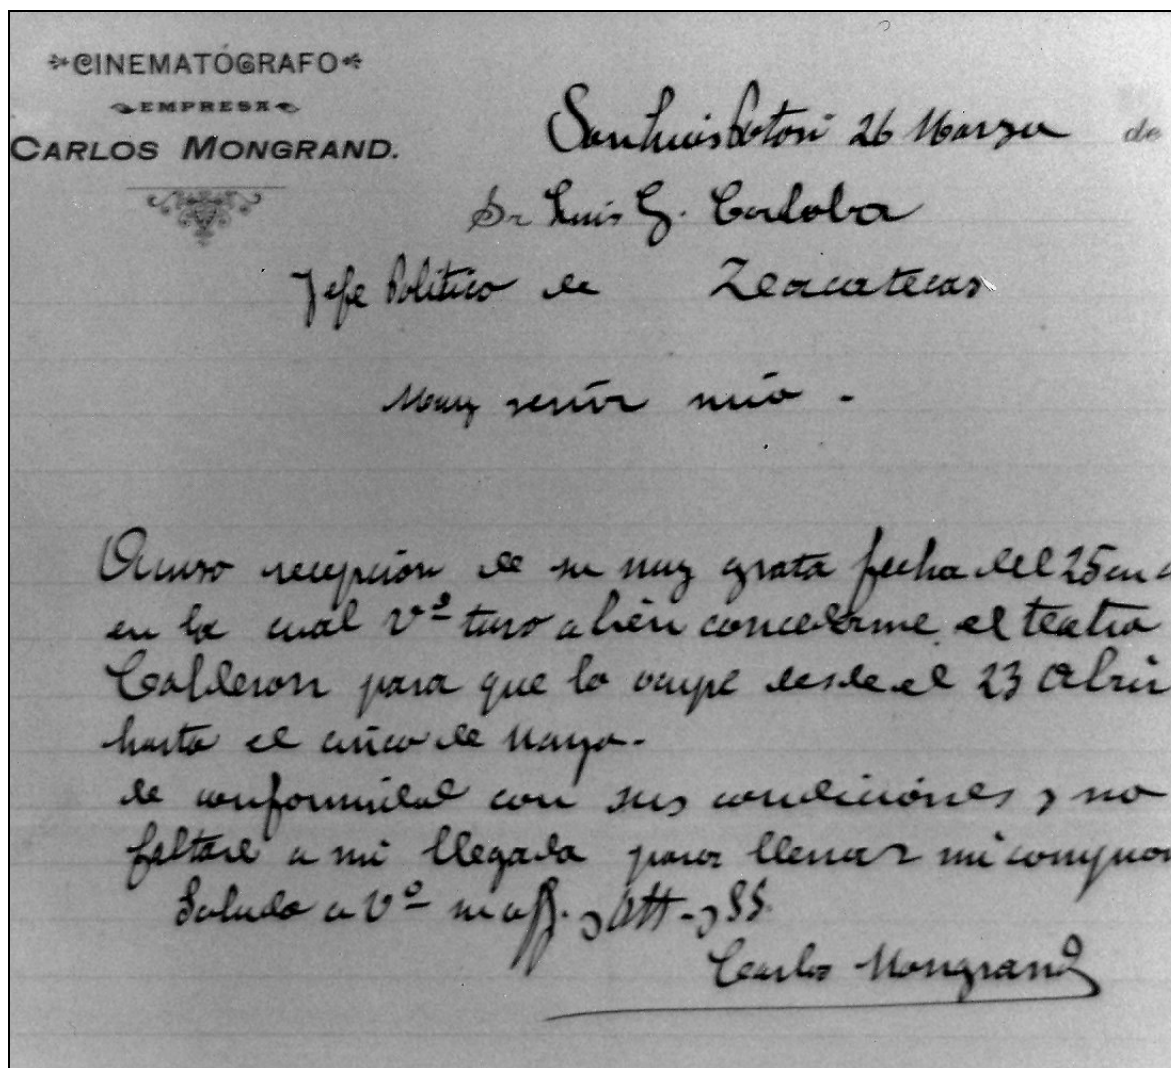 CINEMATÓGRAFO
EMPRESA
CARLOS MONGRAND.
San Luis Potosi 26 Marzo de
Sr Luis G. Cordoba
Jefe Politico de Zacatecas
Muy señor mio -
Acuso recepción de su muy grata fecha del 25 en
en la cual Vº tuvo a bién concederme el teatro
Calderon para que lo ocupe desde el 23 Abril
hasta el cinco de Mayo.
de conformidad con sus condiciónes y no
faltaré a mi llegada para llenar mi compro
Saludo a Vº su aff. y Att - y SS.
Carlos Mongrand